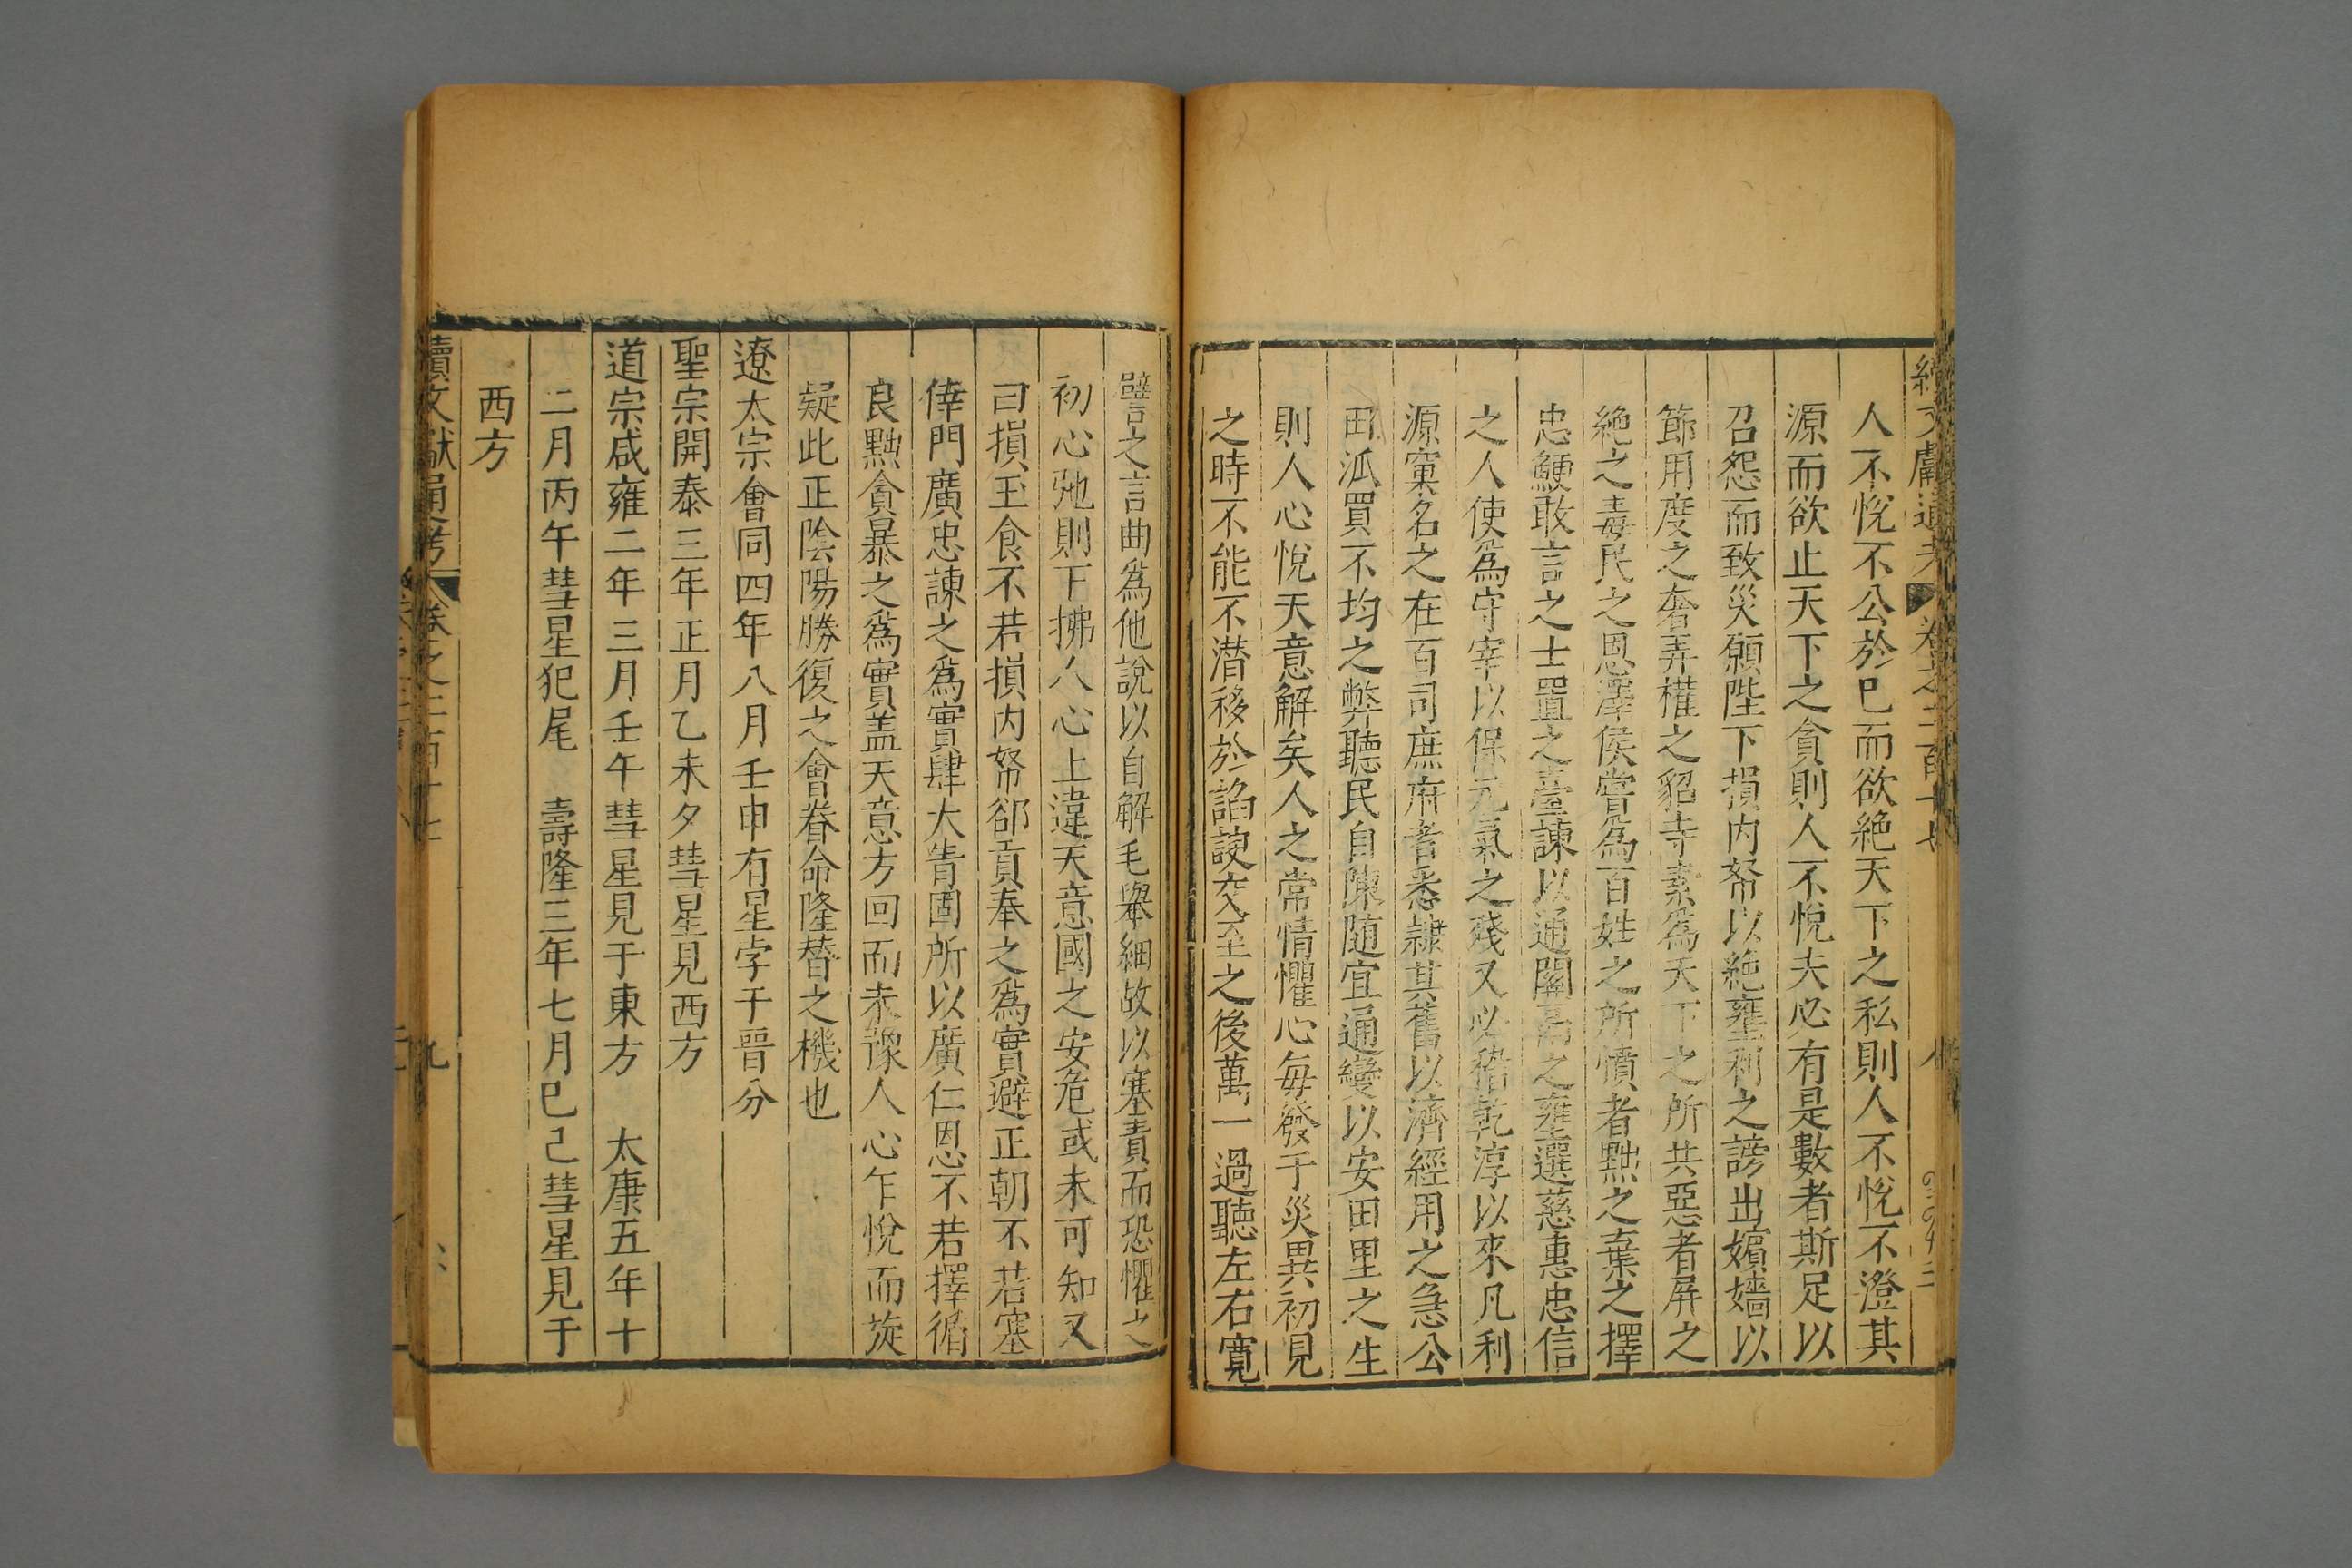 續文獻通考 卷之二百十七 八
人不悅不公於巳而欲絶天下之私則人不悅不澄其
源而欲止天下之貪則人不悅夫必有是數者斯足以
召怨而致災願陛下損内帑以絶壅利之謗出嬪嬙以
節用度之奢弄權之貂寺素爲天下之所共惡者屏之
絶之毒民之恩澤侯嘗爲百姓之所憤者黜之棄之擇
忠鯁敢言之士置之臺諫以通關鬲之壅選慈惠忠信
之人使爲守宰以保元氣之殘又必稽乾淳以來凡利
源窠名之在百司庶府者悉隷其舊以濟經用之急公
田派買不均之弊聽民自陳随宜通變以安田里之生
則人心悅天意解矣人之常情懼心毎發于災異初見
之時不能不潜移於諂諛交至之後萬一過聽左右寛
譬之言曲爲他說以自解毛舉細故以塞責而恐懼之
初心弛則下拂人心上違天意國之安危或未可知又
曰損玉食不若損内帑郤貢奉之爲實避正朝不若塞
倖門廣忠諫之爲實肆大眚固所以廣仁恩不若擇循
良黜貪暴之爲實盖天意方回而未豫人心乍悅而旋
疑此正陰陽勝復之會眷命隆替之機也
遼太宗會同四年八月壬申有星孛于晉分
聖宗開泰三年正月乙未夕彗星見西方
道宗咸雍二年三月壬午彗星見于東方 太康五年十
二月丙午彗星犯尾 壽隆三年七月巳己彗星見于
西方
續文獻通考 卷之二百十七 九